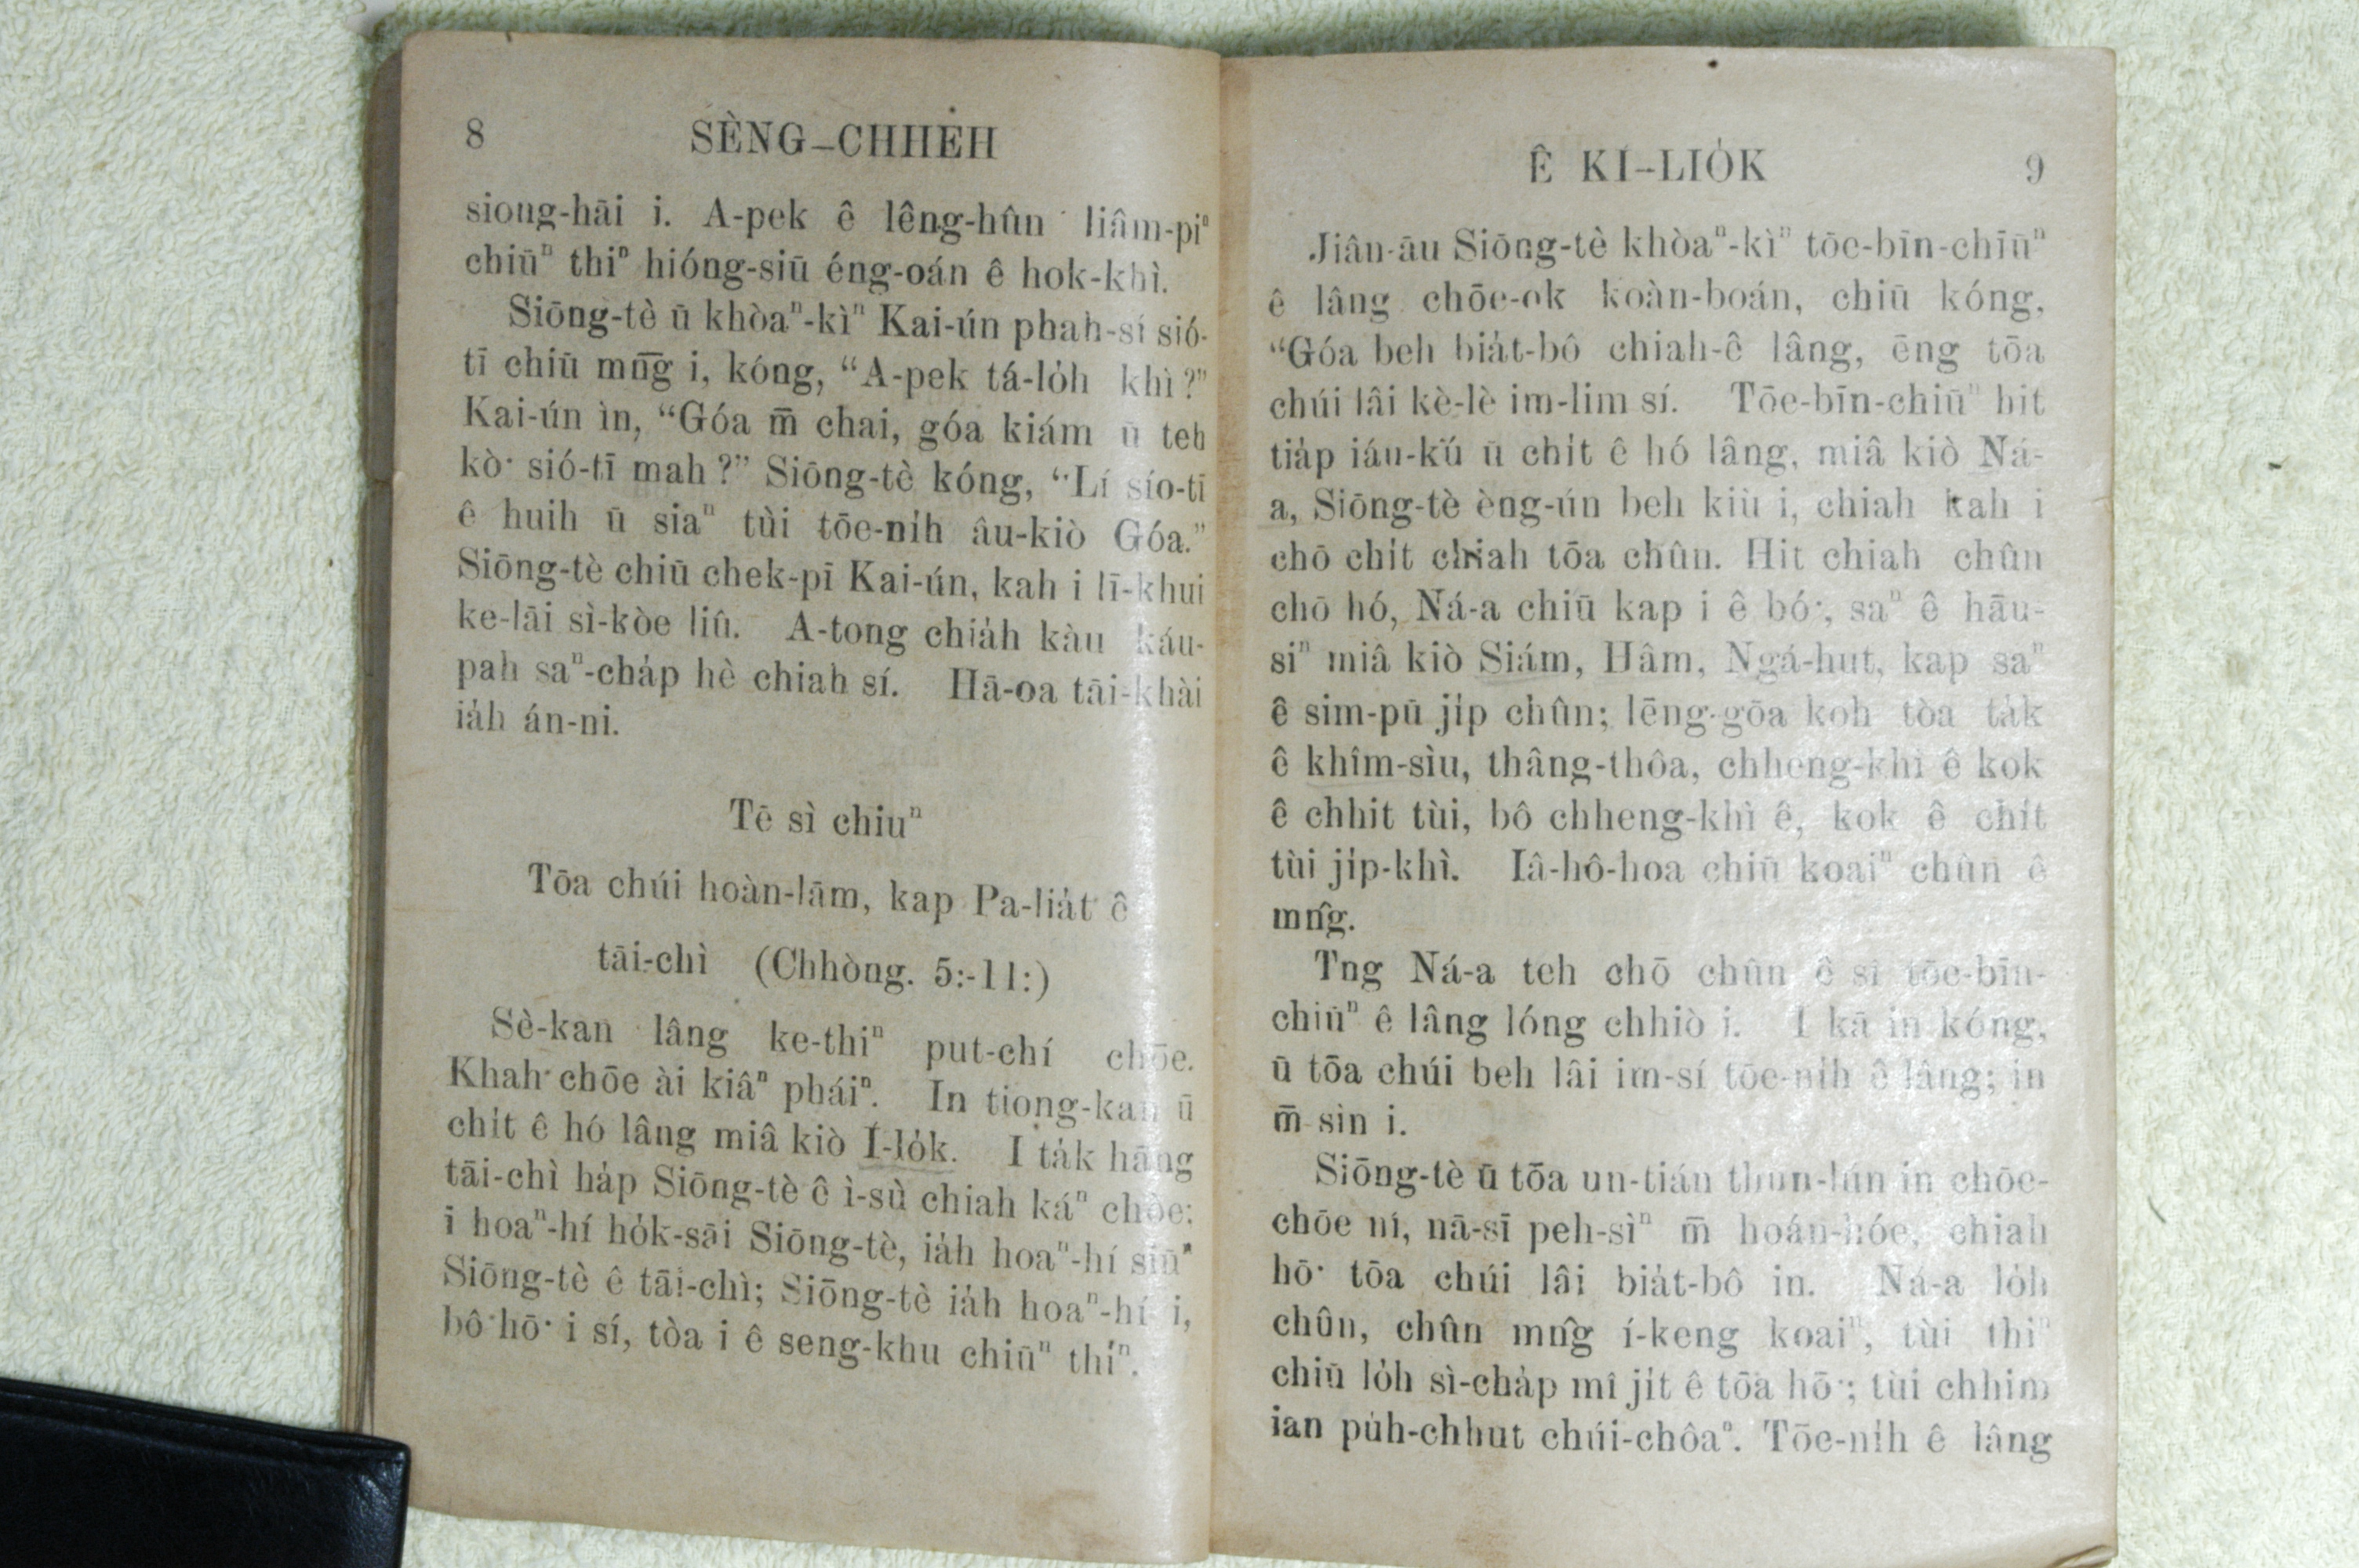 8 SÈNG-CHHE̍H
siong-hāi i. A-pek ê lêng-hûn liâm-piⁿ
chiūⁿ thiⁿ hióng-siū éng-oán ê hok-khì.
Siōng-tè ū khòaⁿ-kìⁿ Kai-ún phah-sí sió-
tī chiū mn̄g i, kóng, “A-pek tá-lo̍h khì?”
Kai-ún ìn, “Góa m̄ chai, góa kiám ū teh
kò͘ sió-tī mah?” Siōng-tè kóng, “Lí sío-tī
ê huih ū siaⁿ tùi tōe-ni̍h âu-kiò Góa.”
Siōng-tè chiū chek-pī Kai-ún, kah i lī-khui
ke-lāi sì-kòe liû. A-tong chia̍h kàu káu-
pah saⁿ-cha̍p hè chiah sí. Hā-oa tāi-khài
ia̍h án-ni.
Tē sì chiuⁿ
Tōa chúi hoàn-lām, kap Pa-lia̍t ê
tāi-chì (Chhòng. 5:-11:)
Sè-kan lâng ke-thiⁿ put-chí chōe.
Khah chōe ài kiâⁿ pháiⁿ. In tiong-kan ū
chi̍t ê hó lâng miâ kiò Í-lo̍k. I ta̍k hāng
tāi-chì ha̍p Siōng-tè ê ì-sù chiah káⁿ chòe;
i hoaⁿ-hí ho̍k-sāi Siōng-tè, ia̍h hoaⁿ-hí siūⁿ
Siōng-tè ê tāi-chì; Siōng-tè ia̍h hoaⁿ-hí i,
bô hō͘ i sí, tòa i ê seng-khu chiūⁿ thíⁿ.
Ê KÍ-LIO̍K 9
Jiân-āu Siōng-tè khòaⁿ-kìⁿ tōe-bīn-chīūⁿ
ê lâng chōe-ok koàn-boán, chiū kóng,
“Góa beh bia̍t-bô chiah-ê lâng, ēng tōa
chúi lâi kè-lè im-lim sí. Tōe-bīn-chiūⁿ hit
tia̍p iáu-kú ū chi̍t ê hó lâng, miâ kiò Ná-
a, Siōng-tè èng-ún beh kiù i, chiah kah i
chō chi̍t chiah tōa chûn. Hit chiah chûn
chō hó, Ná-a chiū kap i ê bó͘, saⁿ ê hāu-
siⁿ miâ kiò Siám, Hâm, Ngá-hut, kap saⁿ
ê sim-pū ji̍p chûn; lēng-gōa koh tòa ta̍k
ê khîm-sìu, thâng-thôa, chheng-khì ê kok
ê chhit tùi, bô chheng-khì ê, kok ê chi̍t
tùi ji̍p-khì. Iâ-hô-hoa chiū koaiⁿ chûn ê
mn̂g.
Tng Ná-a teh chō chûn ê sî tōe-bīn-
chiūⁿ ê lâng lóng chhiò i. I kā in kóng,
ū tōa chúi beh lâi im-sí tōe-ni̍h ê lâng; in
m̄ sìn i.
Siōng-tè ū tōa un-tián thun-lún in chōe-
chōe nî, nā-sī peh-sìⁿ m̄ hoán-hóe, chiah
hō͘ tōa chúi lâi bia̍t-bô in. Ná-a lo̍h
chûn, chûn mn̂g í-keng koaiⁿ, tùi thiⁿ
chiū lo̍h sì-cha̍p mî ji̍t ê tōa hō͘; tùi chhim
ian pu̍h-chhut chúi-chôaⁿ. Tōe-ni̍h ê lâng